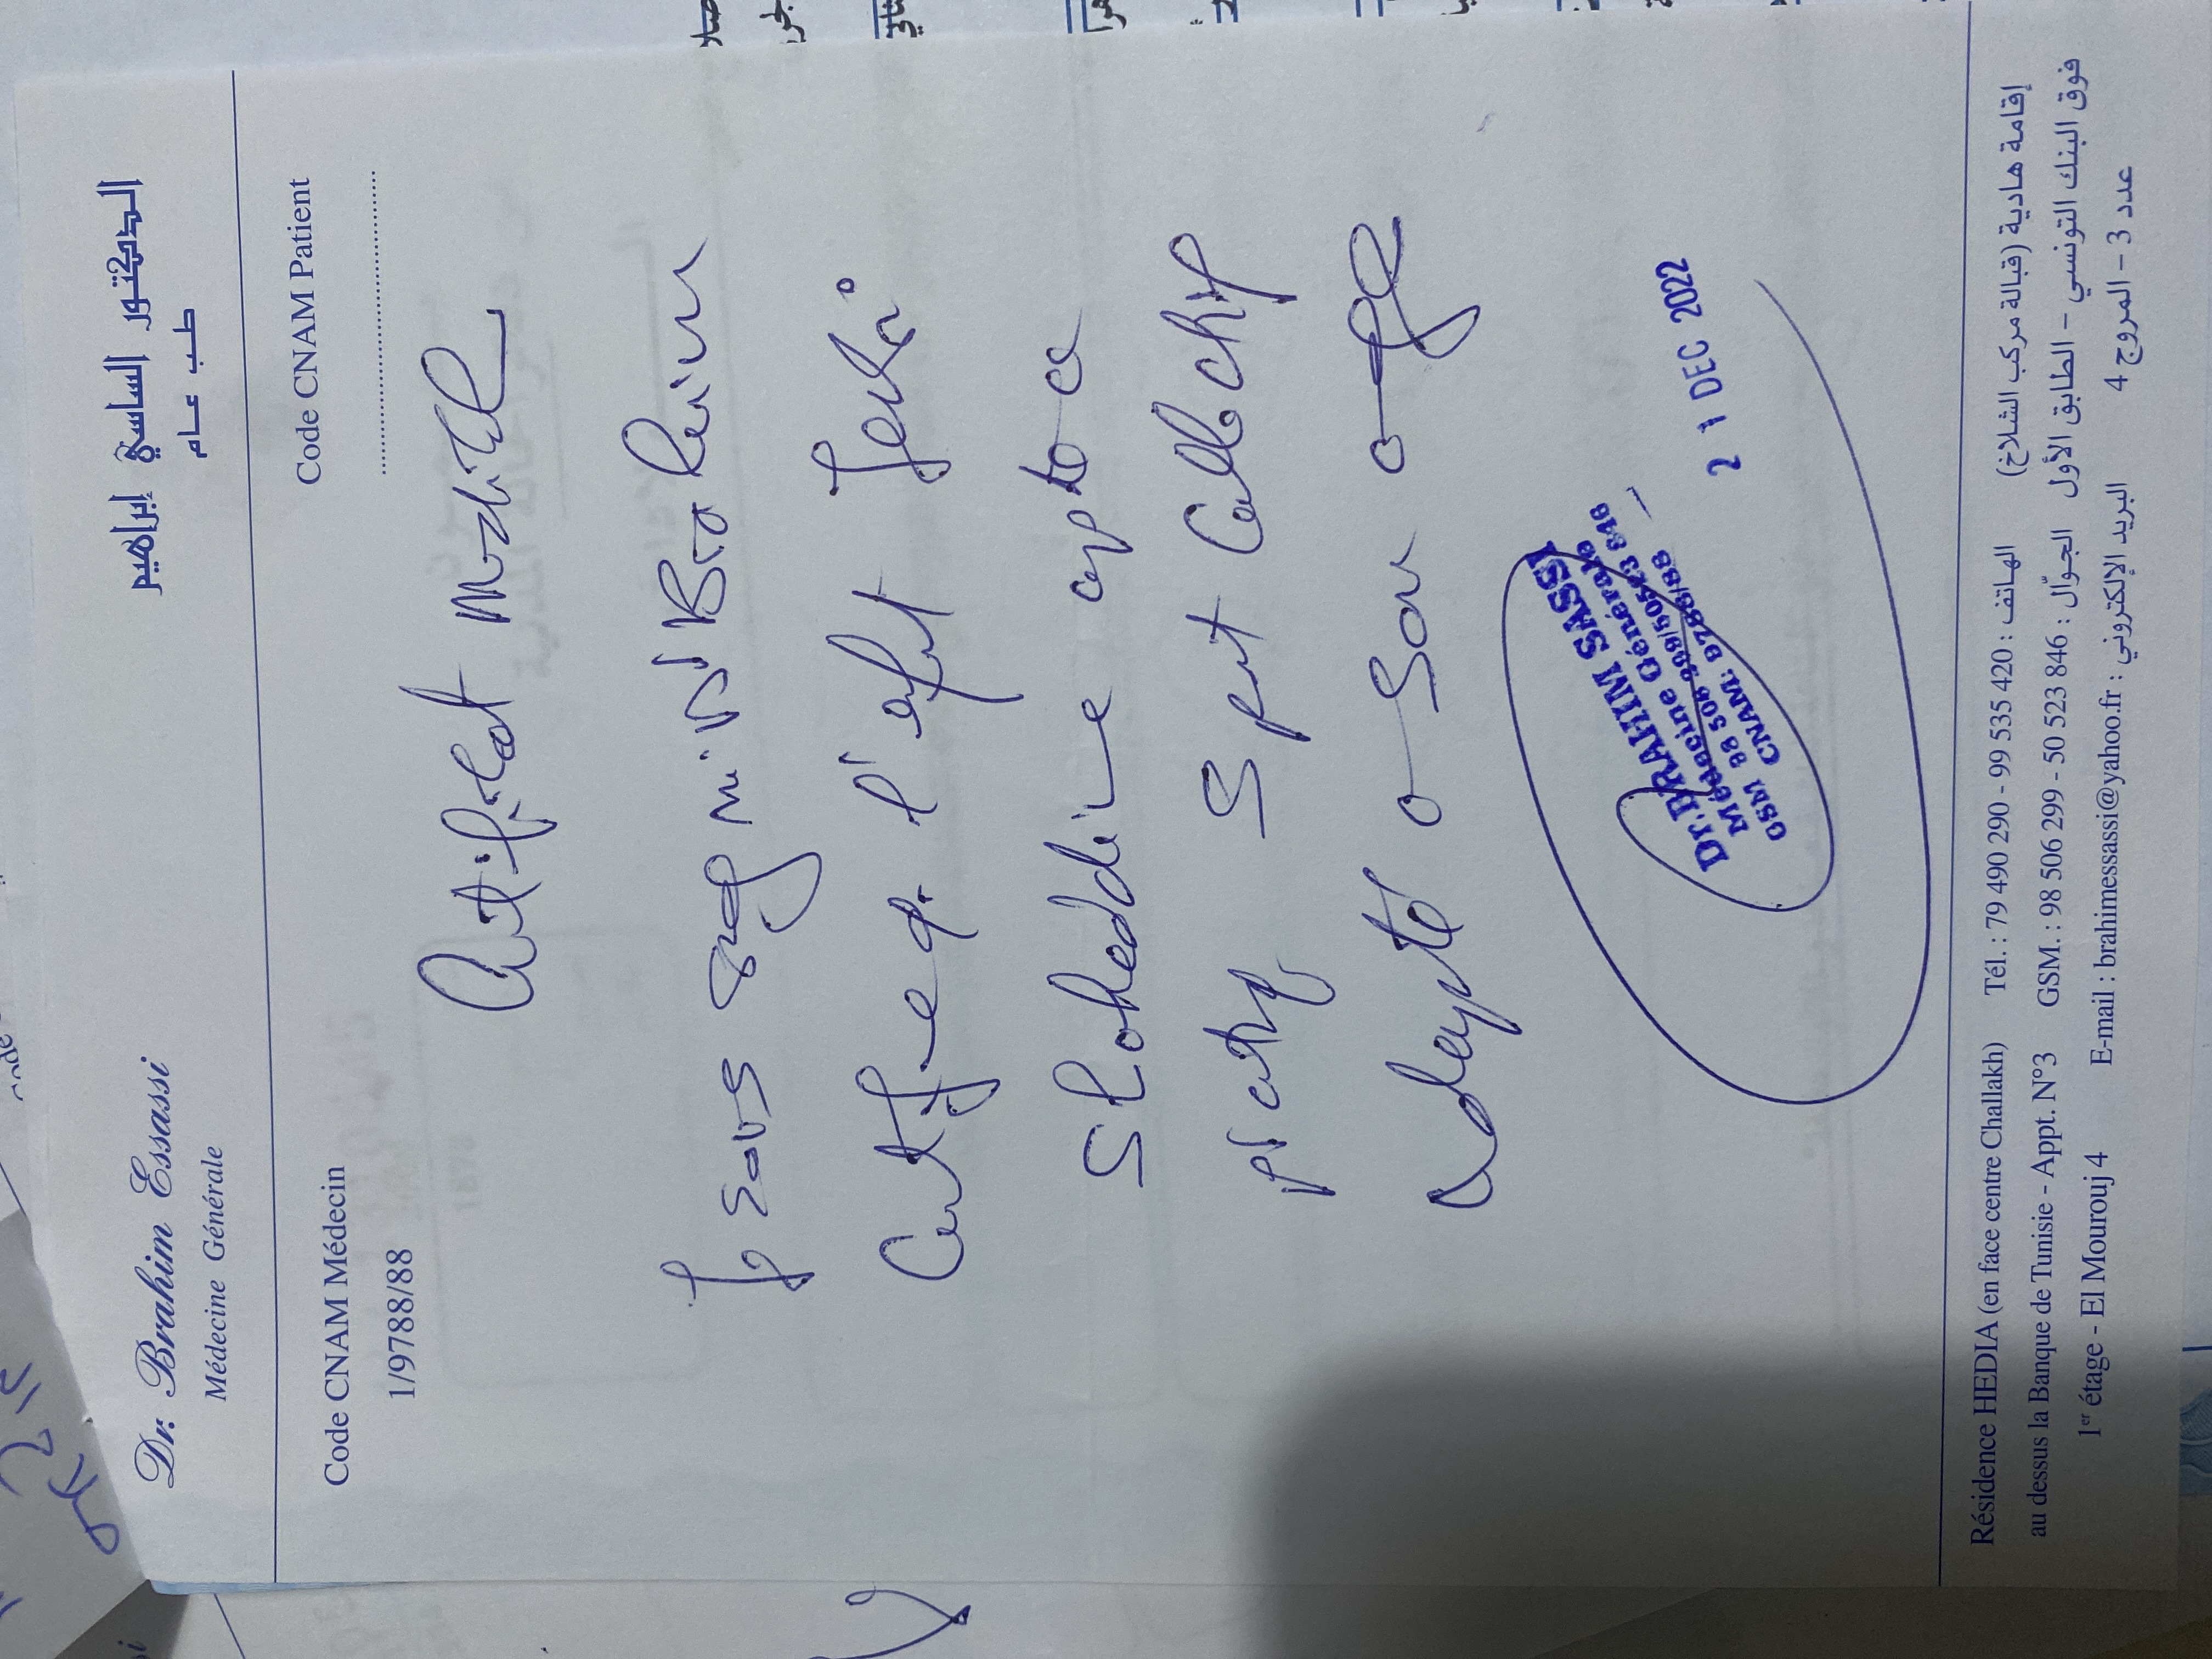 Dr. Brahim Essassi
Médecine Générale
الدكتور الساسي إبراهيم
طب عام
Code CNAM Médecin
1/9788/88
Code CNAM Patient
Certificat Medical
Je sous signé Dr Brahim
Certifie q. l'enfant Fekri
Shaheddine apte a
Sport Collectif
adapté a son age
Dr. BRAHIM SASSI
Médecine Générale
GSM 98 506 299/50523 846
CNAM: 9788/88
21 DEC 2022
Résidence HEDIA (en face centre Challakh)
au dessus la Banque de Tunisie - Appt. N°3
1er étage - El Mourouj 4
Tél. : 79 490 290 - 99 535 420 : الهاتف
GSM. : 98 506 299 - 50 523 846 : الجوّال
E-mail : brahimessassi@yahoo.fr : البريد الإلكتروني
إقامة هادية (قبالة مركب الشلاخ)
فوق البنك التونسي - الطابق الأول
عدد 3 - المروج 4